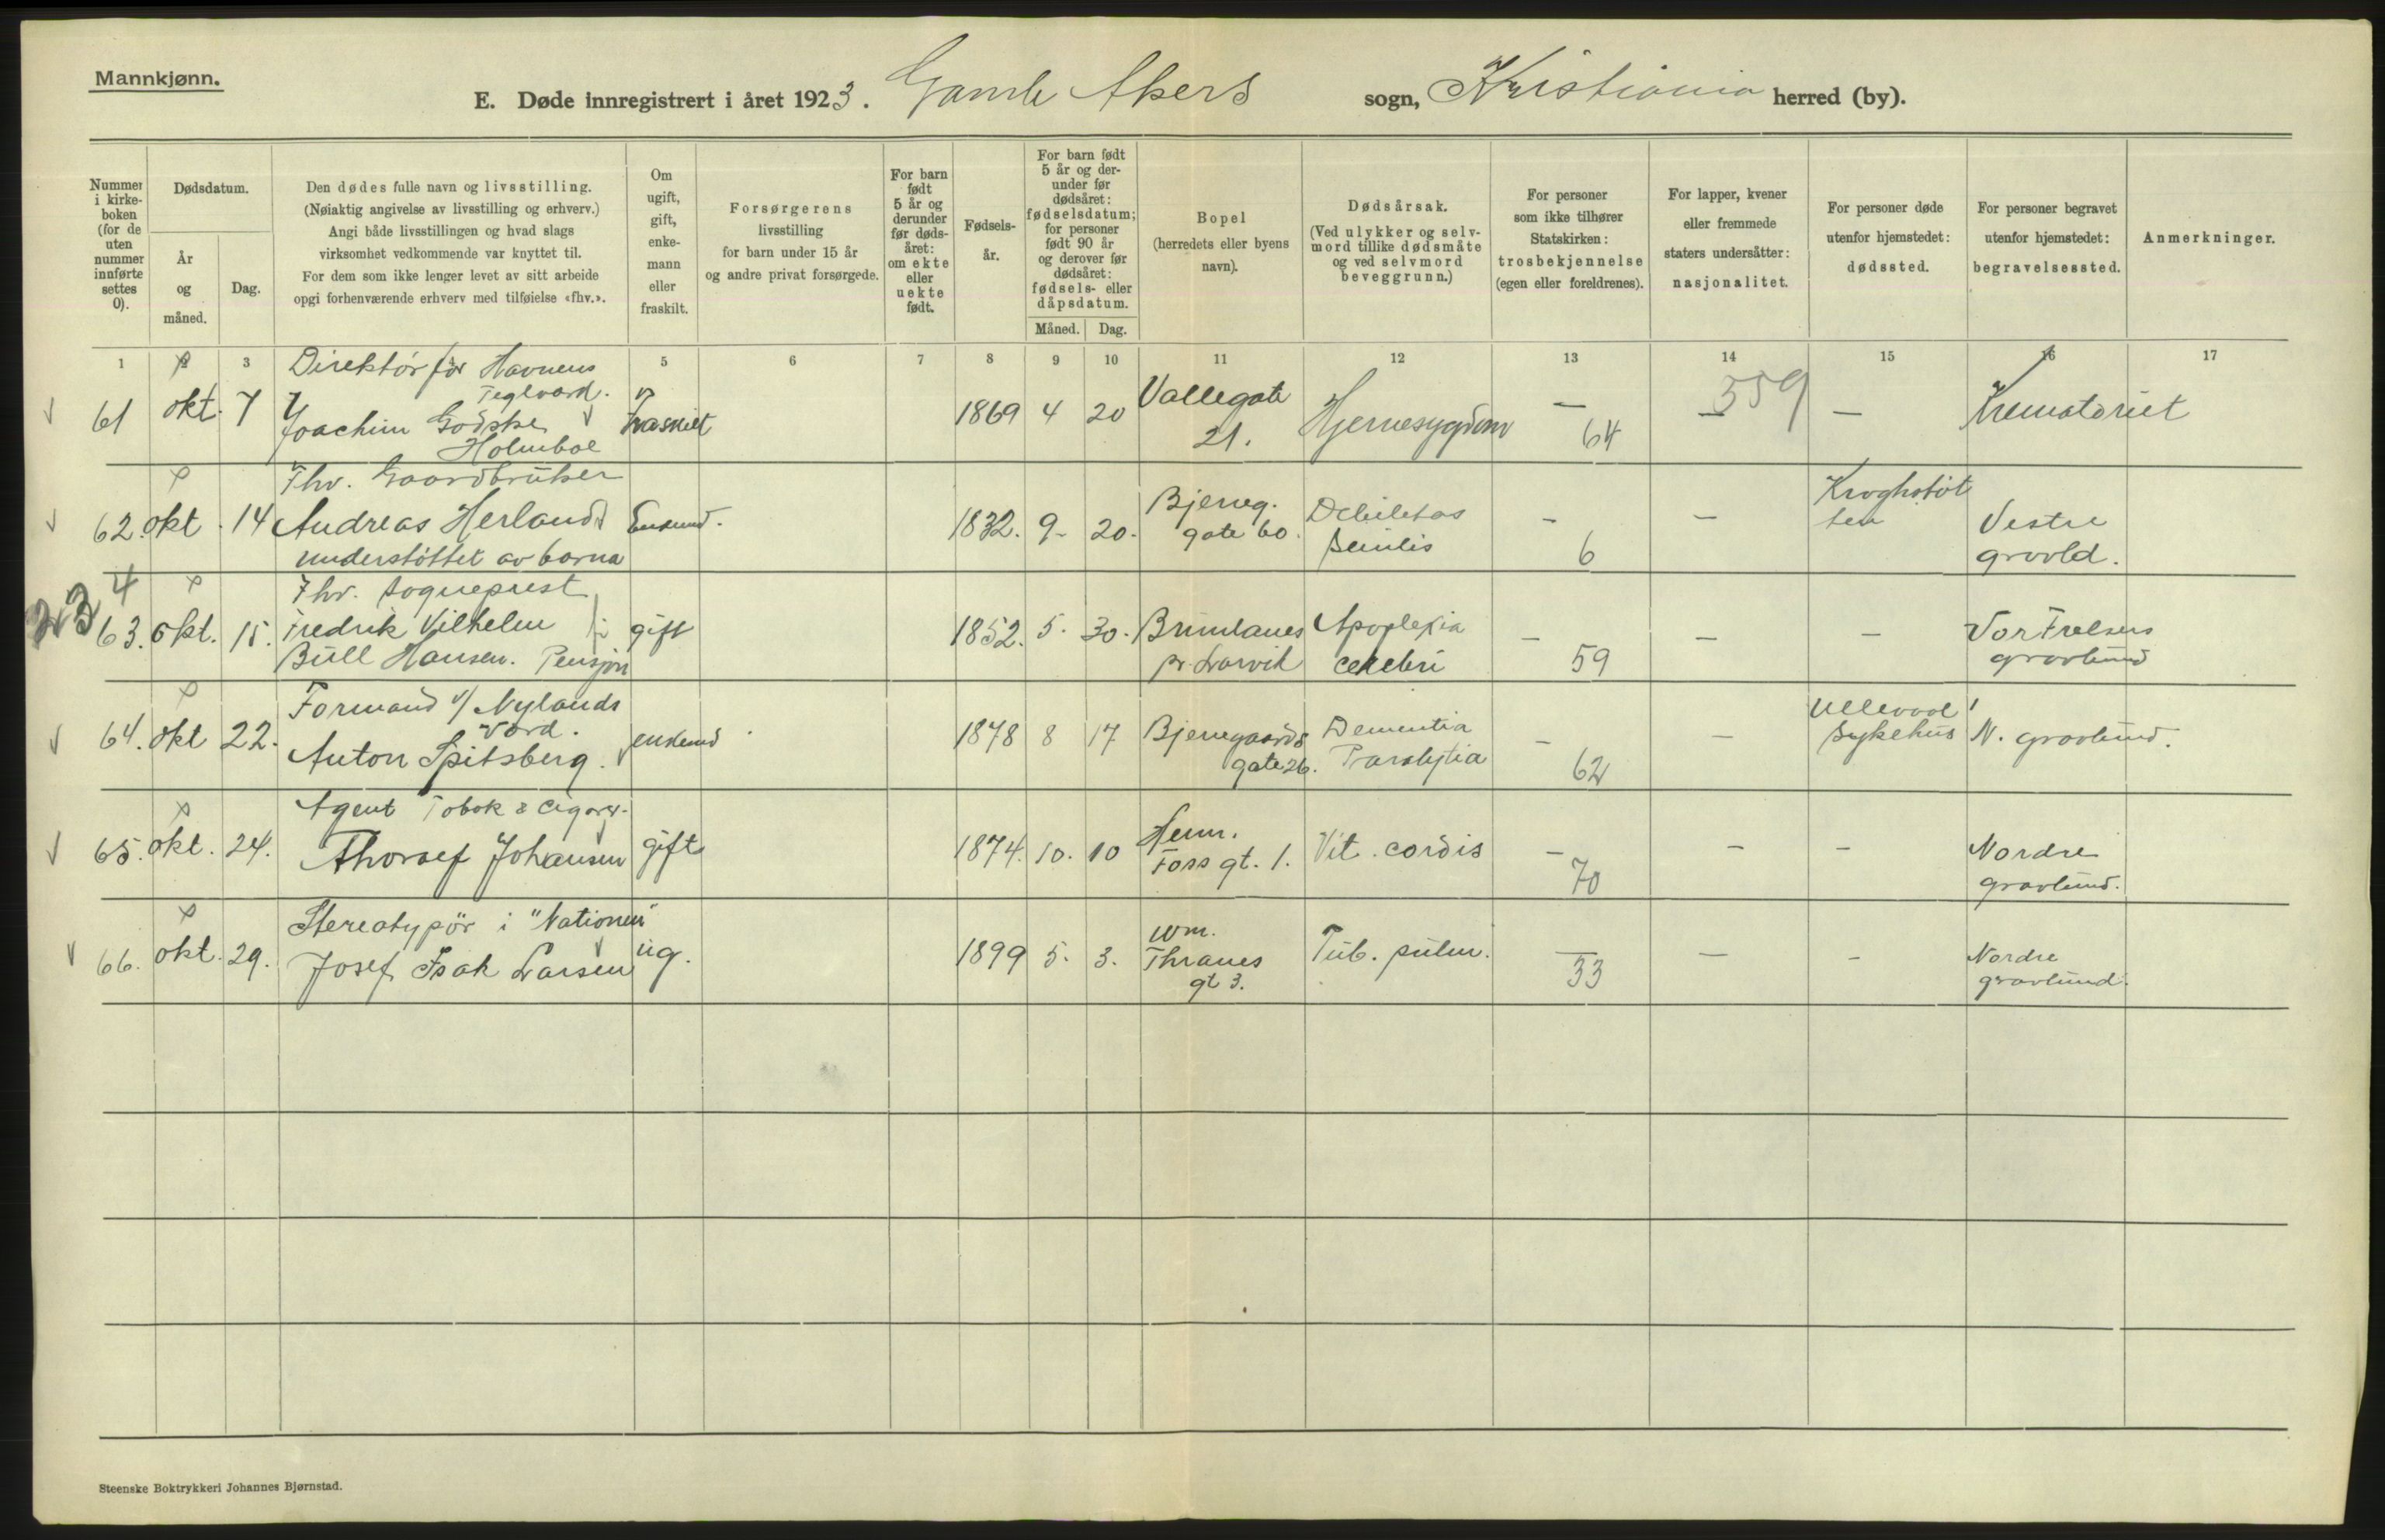 Mannkjønn.
E. Døde innregistrert i året 1923. Gamle Akers sogn, Kristiania herred (by).
Nummer i kirke-boken (for de uten nummer innførte settes 0).
Dødsdatum.
År og måned.
Dag.
Den dødes fulle navn og livsstilling.
(Nøiaktig angivelse av livsstilling og erhverv.)
Angi både livsstillingen og hvad slags
virksomhet vedkommende var knyttet til.
For dem som ikke lenger levet av sitt arbeide
opgi forhenværende erhverv med tilføielse «fhv.».
Om ugift, gift, enke-mann eller fraskilt.
Forsørgerens
livsstilling
for barn under 15 år
og andre privat forsørgede.
For barn født 5 år og derunder før døds-året: om ekte eller uekte født.
Fødsels-år.
For barn født 5 år og der-under før dødsåret: fødselsdatum; for personer født 90 år og derover før dødsåret: fødsels- eller dåpsdatum.
Måned. Dag.
Bopel
(herredets eller byens
navn).
Dødsårsak.
(Ved ulykker og selv-
mord tillike dødsmåte
og ved selvmord
beveggrunn.)
For personer
som ikke tilhører
Statskirken:
trosbekjennelse
(egen eller foreldrenes).
For lapper, kvener
eller fremmede
staters undersåtter:
nasjonalitet.
For personer døde
utenfor hjemstedet:
dødssted.
For personer begravet
utenfor hjemstedet:
begravelsessted.
Anmerkninger.
1 2 3 5 6 7 8 9 10 11 12 13 14 15 16 17
Direktør for Havnens
Teglverd.
61 okt. 7 Joachim Godske Holmboe fraskilt 1869 4 20 Vallegate 21. Hjernesygdom — 64 — 359 — Krematoriet
Fhv. Gaardbruker
62. okt. 14 Andreas Herland Enkemd. 1832. 9- 20. Bjerreg. gate 60. Debilitas senilis — 6 — Kroghstøtten Vestre gravld.
understøttet av barna
23 4
Fhv. sogneprest
63. okt. 15. Fredrik Vilhelm Büll Hansen. Pensjon gift 1852. 5. 30. Brunlanes pr. Larvik Apoplexia cerebri — 59 — — Vor Frelsers gravlund
Formand v/ Nylands Verd.
64. okt 22. Anton Spitsberg. enkemd 1878 8 17 Bjerregaards gate 26. Dementia Paralytia — 62 — Ullevaal Sykehus N. gravlund.
Agent Tobak & Cigarer.
65. okt. 24. Thoralf Johansen gift 1874. 10. 10 Herm. Foss gt. 1. Vit. cordis — 70 — — Nordre gravlund.
Stereotypör i "Nationen"
66. okt. 29. Josef Isak Larsen ug. 1899 5. 3. Wm. Thranes gt 3. Tub. pulm. — 33 — — Nordre gravlund.
Steenske Boktrykkeri Johannes Bjørnstad.